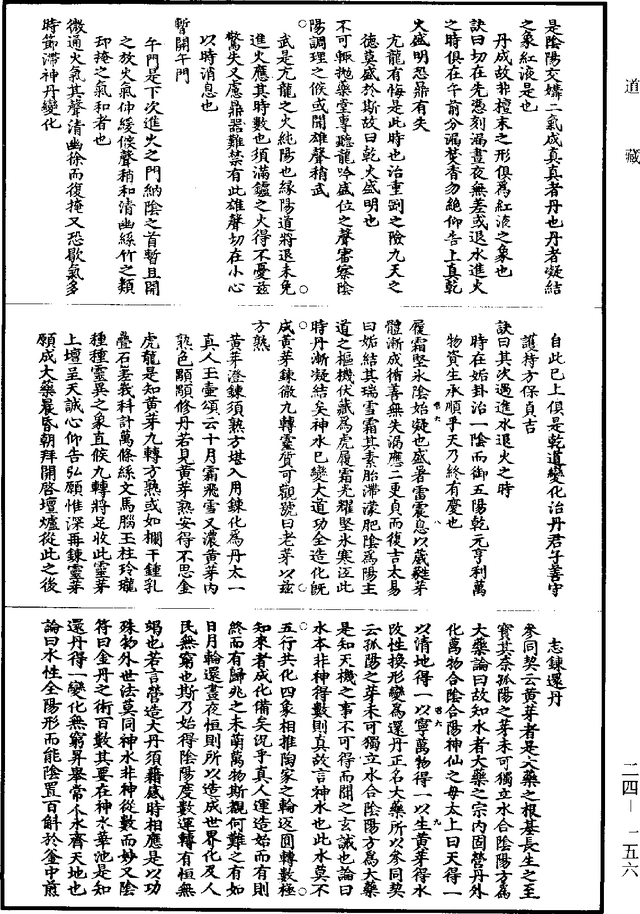 道藏
是陰陽交媾二氣成真真者丹也丹者凝結
之象紅液是也
丹成故非檀末之形俱爲紅液之象也
訣曰切在先憑刻漏晝夜無差或退水進火
之時俱在午前分漏焚香勿絶仰告上真乾
火盛明恐鼎有失
亢龍有悔是此時也治重剛之險九天之
德莫盛於斯故曰乾火盛明也
不可輒抛藥室專聽龍吟盛位之聲審察陰
陽調理之候或聞雄聲稍武
武是亢龍之火純陽也緣陽道將退未免
進火應其時數也須滿鑪之火得不憂茲
驚失又慮鼎器難禁有此雄聲切在小心
以時消息也
暫開午門
午門是下次進火之門納陰之首暫且開
之放火氣仲緩候聲稍和清幽絲竹之類
卭掩之氣和者也
微通火氣其聲清幽徐而復掩又恐歇氣多
時節滯神丹變化
自此已上俱是乾道變化治丹君子善守
護持方保貞吉
訣曰其次遇進水退火之時
時在姤卦治一陰而御五陽乾元亨利萬
物資生承順乎天乃終有慶也
履霜堅氷陰始凝也盛暑雷震息以葳蕤芽
體漸成循善無失渦應二吏貞而復吉太易
曰姤結其瑞雪霜其素胎滯濛肥陰爲陽主
道之樞機伏藏爲虎履霜光耀堅氷寒迓此
時丹漸凝結矣神水巳變大道功全造化旣
成黃芽鍊徹九轉靈質可觀號曰老芽以茲
方熟
黃芽澄鍊須熟方堪入用鍊化爲丹太一
真人王壷頌云十月霜飛雪又濃黃芽內
熟色顆顆修丹若見黃芽熟安得不思金
虎龍是知黃芽九轉方熟或如欄干鍾乳
疊石差義科計萬條絲文馬腦玉柱玲瓏
種種靈異之象直候九轉將足收此靈芽
上壇呈天誠心仰告弘願惟深再鍊靈芽
願成大藥晨昏朝拜開啓壇爐從此之後
志鍊還丹
參同契云黃芽者是大藥之根基長生之至
寶其奈孤陽之芽未可獨立水合陰陽方爲
大藥論曰故知水者大藥之宗內固營丹外
化萬物合陰合陽神仙之母太上曰天得一
以清地得一以寧萬物得一以生黃芽得水
改性換形變爲還丹正名大藥所以參同契
云孤陽之芽未可獨立水合陰陽方爲大藥
是知天機之事不可得而聞之玄誡也論曰
水本非神得數則真故言神水也此水莫不
五行共化四象相推陶家之輪迓圓轉數極
知來者成化備矣況乎真人運造始而有則
終而有歸兆之未萌萬物斯觀何難之有如
日月輪還晝夜恒則所以造成世界化及人
民無窮也斯乃始得陰陽度數運轉有恒無
竭也若言營造大丹須藉盛時相應是以功
殊物外世法莫同神水非神從數而妙又陰
符曰金丹之術百數其要在神水華池是知
還丹得一變化無窮昇舉常人永齊天地也
論曰水性全陽形而能陰置百斛於釜中煎
二四—一五六